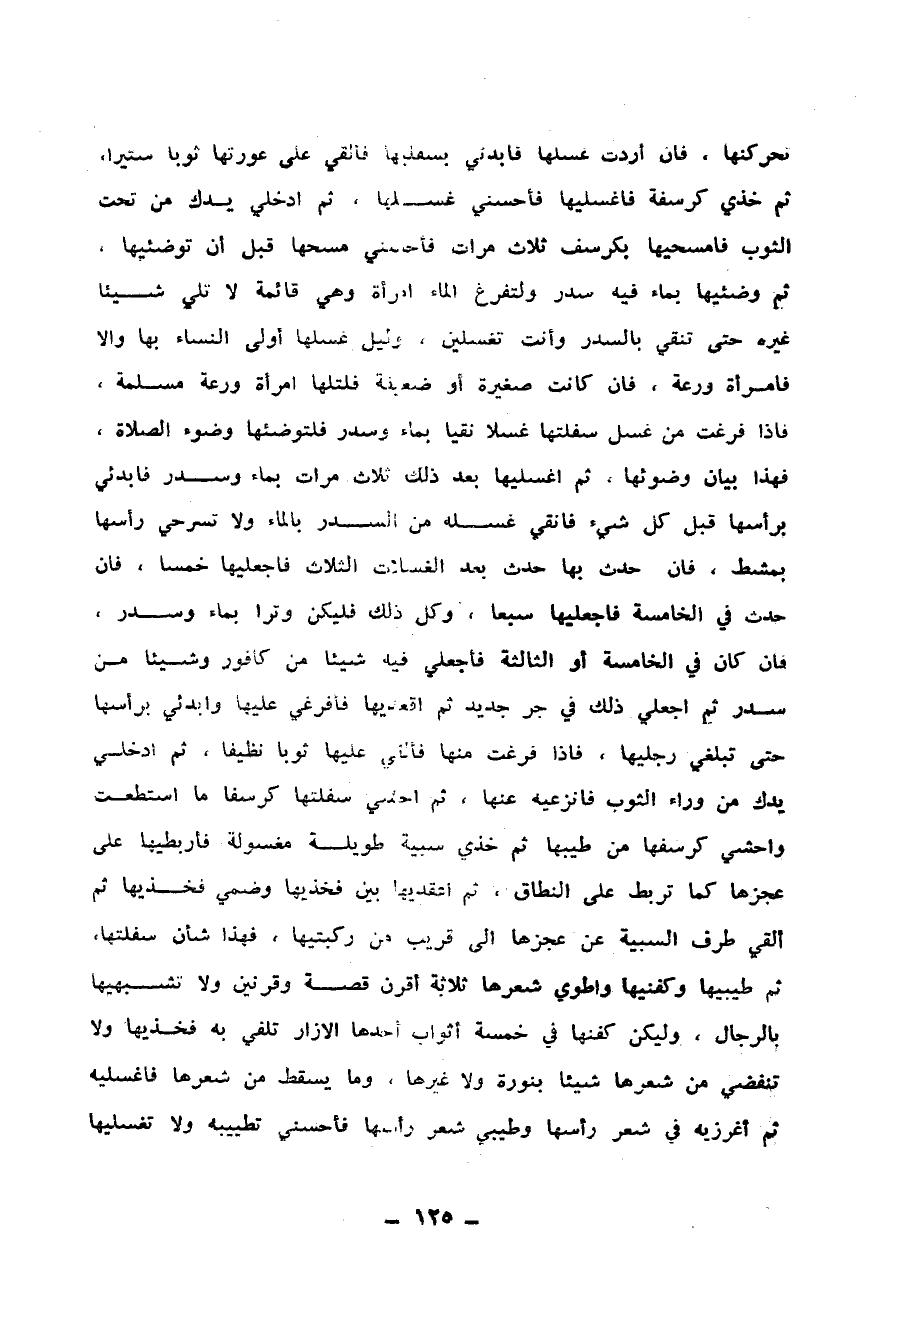 تحركنها ، فان أردت غسلها فابدئي بسفلتها فألقي على عورتها ثوبا ستيرا،
ثم خذي كرسفة فاغسليها فأحسني غسلها ، ثم ادخلي يدك من تحت
الثوب فامسحيها بكرسف ثلاث مرات فأحسني مسحها قبل أن توضئيها ،
ثم وضئيها بماء فيه سدر ولتفرغ الماء ادرأة وهي قائمة لا تلي شيئا
غيره حتى تنقي بالسدر وأنت تغسلين ، وليل غسلها أولى النساء بها والا
فامرأة ورعة ، فان كانت صغيرة أو ضعيفة فلتلها امرأة ورعة مسلمة ،
فاذا فرغت من غسل سفلتها غسلا نقيا بماء وسدر فلتوضئها وضوء الصلاة ،
فهذا بيان وضوئها ، ثم اغسليها بعد ذلك ثلاث مرات بماء وسدر فابدئي
برأسها قبل كل شيء فانقي غسله من السدر بالماء ولا تسرحي رأسها
بمشط ، فان حدث بها حدث بعد الغسلات الثلاث فاجعليها خمسا ، فان
حدث في الخامسة فاجعليها سبعا ، وكل ذلك فليكن وترا بماء وسدر ،
فان كان في الخامسة أو الثالثة فأجعلي فيه شيئا من كافور وشيئا من
سدر ثم اجعلي ذلك في جر جديد ثم اقعديها فأفرغي عليها وابدئي برأسها
حتى تبلغي رجليها ، فاذا فرغت منها فألقي عليها ثوبا نظيفا ، ثم ادخلي
يدك من وراء الثوب فانزعيه عنها ، ثم احشي سفلتها كرسفا ما استطعت
واحشي كرسفها من طيبها ثم خذي سبية طويلة مغسولة فأربطيها على
عجزها كما تربط على النطاق ، ثم اعقديها بين فخذيها وضمي فخذيها ثم
ألقي طرف السبية عن عجزها الى قريب من ركبتيها ، فهذا شأن سفلتها،
ثم طيبيها وكفنيها واطوي شعرها ثلاثة أقرن قصة وقرنين ولا تشبهيها
بالرجال ، وليكن كفنها في خمسة أثواب أحدها الازار تلفي به فخذيها ولا
تنفضي من شعرها شيئا بنورة ولا غيرها ، وما يسقط من شعرها فاغسليه
ثم أغرزيه في شعر رأسها وطيبي شعر رأسها فأحسني تطييبه ولا تغسليها
ـ ١٢٥ ـ